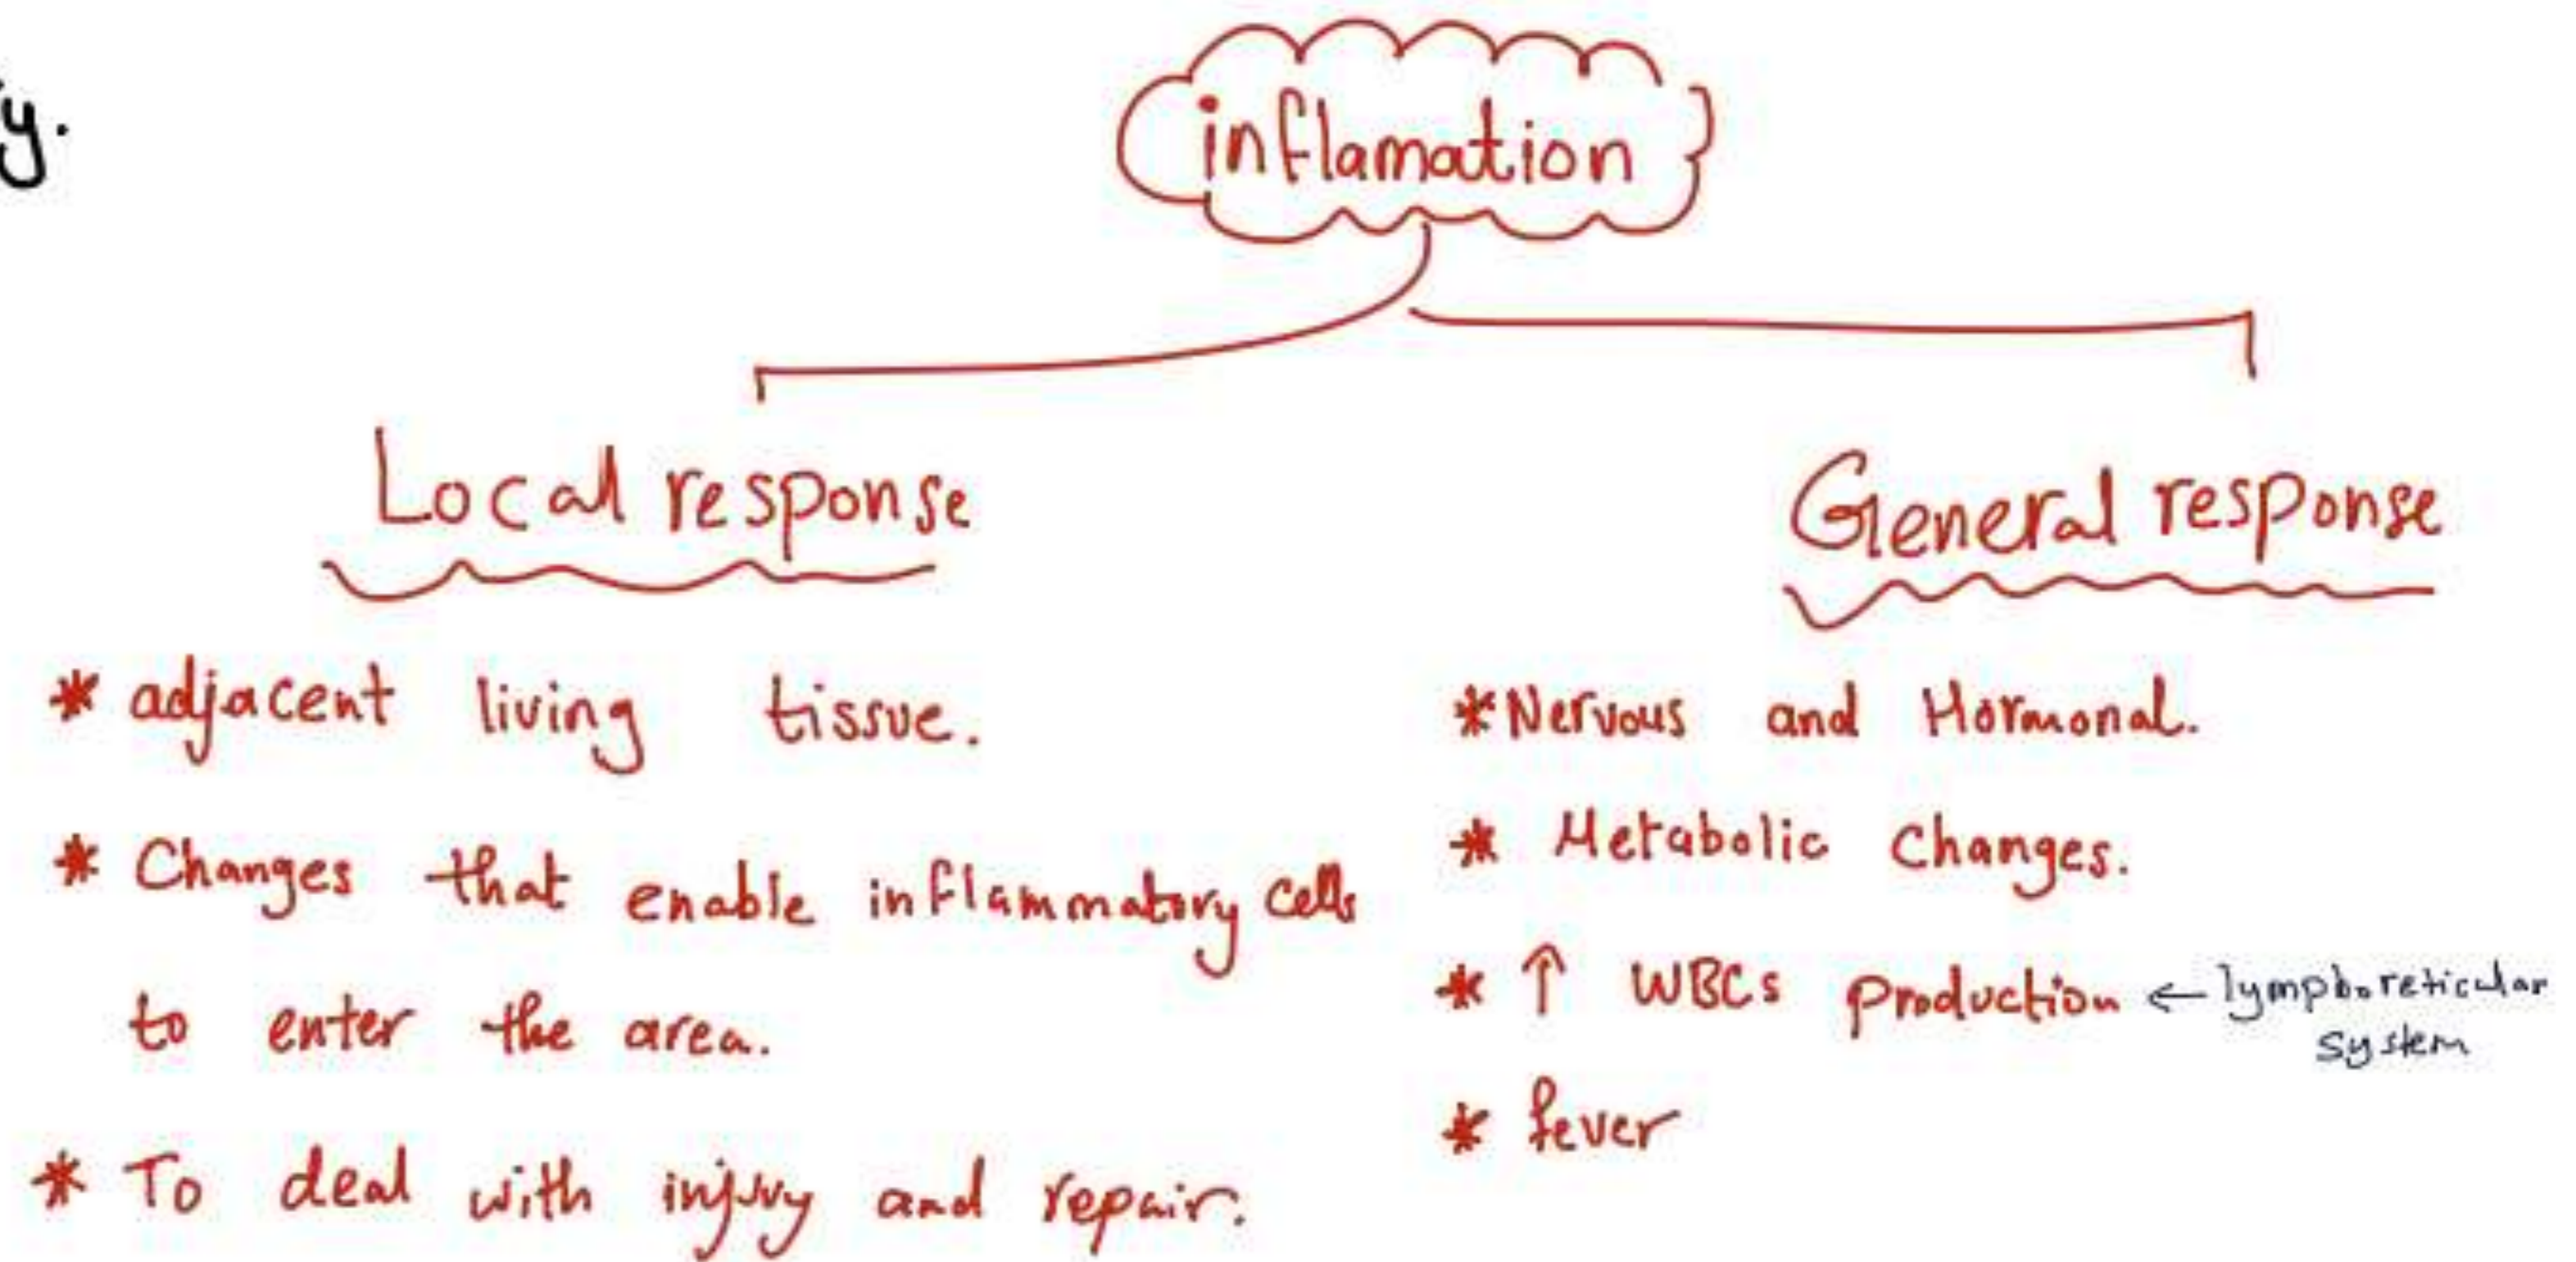 y.
inflamation
Local response
* adjacent living tissue.
* Changes that enable inflammatory cells
to enter the area.
* To deal with injury and repair.
General response
* Nervous and Hormonal.
* Metabolic Changes.
* ↑ WBCs production ← lymphoreticular
system
* fever